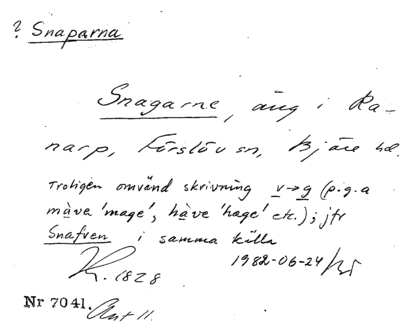 ? Snaparna
Snagarne, äng i Ra-
narp, Förslöv sn, Bjäre hd.
Troligen omvänd skrivning v→g (p.g.a
måve 'mage', håve 'hage' etc.); jfr
Snafven i samma källa
1982-06-24
K. 1828
Nr 7041. Akt 11.